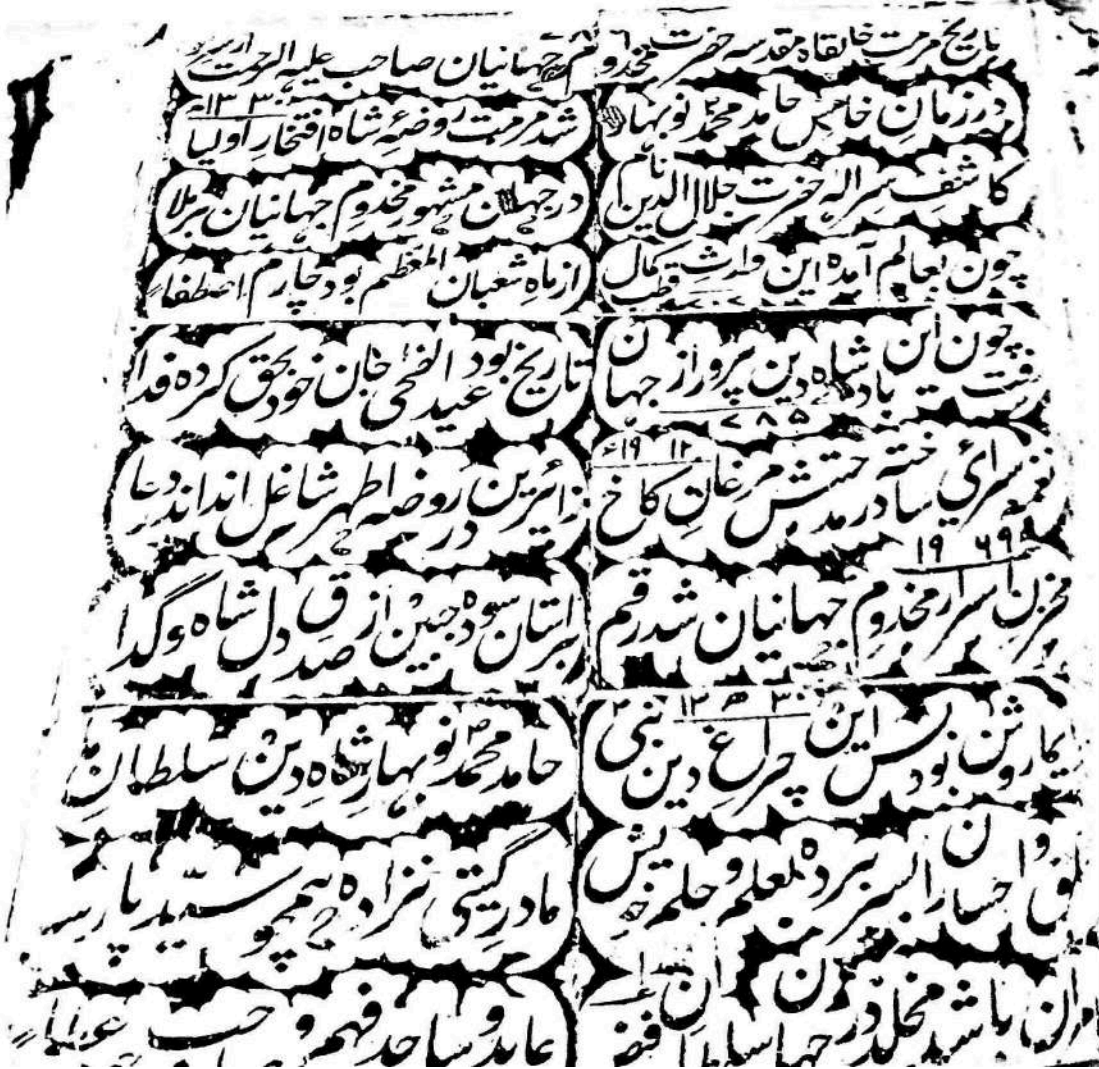 ۷۸۶
تاریخ مرمت خانقاہ مقدسہ حضرت مخدوم جہانیان صاحب علیہ الرحمت
در زمانِ خامس حامد محمد نوبہار شد مرمت روضۂ شاہ افتخارِ اولیا ۱۳۳۰
کاشفِ سرِ الٰہ حضرت جلال الدین نام در جہان مشہور مخدوم جہانیان برملا
چون بعالم آمدہ این وارثِ قطب کمال از ماہِ شعبان المعظم بود چارم اصطفا
۷۰۷
چون این بادشاہ دین پرور از جہان رفت تاریخ بود عید الضحٰی جان خود بحق کردہ فدا
۷۸۵
نغمہ سرائی ساختہ در مدحتش مرغانِ کاخ زائرین در روضہ اطہر شاغل اند اندر دعا
۱۹۱۲ء
۱۹۶۹
مخزنِ اسرار مخدوم جہانیان شد رقم بر استان سودہ جبین از صدقِ دل شاہ و گدا
۱۳۳۰ھ
روشن بود این چراغِ دین نبی حامد محمد نوبہار شاہِ دین سلطانِ
و احسان را بسر بردہ بعلم و حلم خویش مادرِ گیتی نزادہ ہمچو سید پارسا
باشد مخلد در جہان عابد و ساجد فہم و